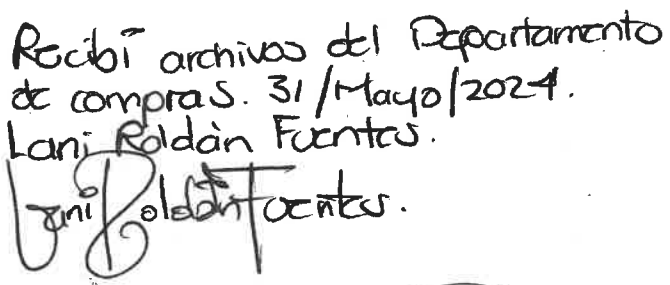 Recibí archivos del Departamento
de compras. 31/Mayo/2024.
Lani Roldán Fuentes.
Lani Roldán Fuentes.